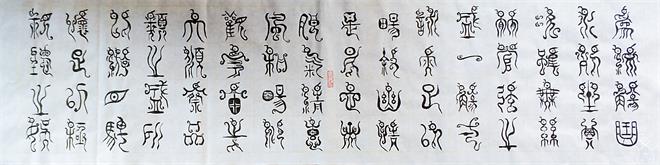 為流觴曲
水列坐其
次雖無絲
竹管弦之
盛一觴一
詠亦足以
暢敘幽情
是日也天
朗氣清惠
風和暢仰
觀宇宙之
大俯察品
類之盛所
以遊目騁
懷足以極
視聽之娛